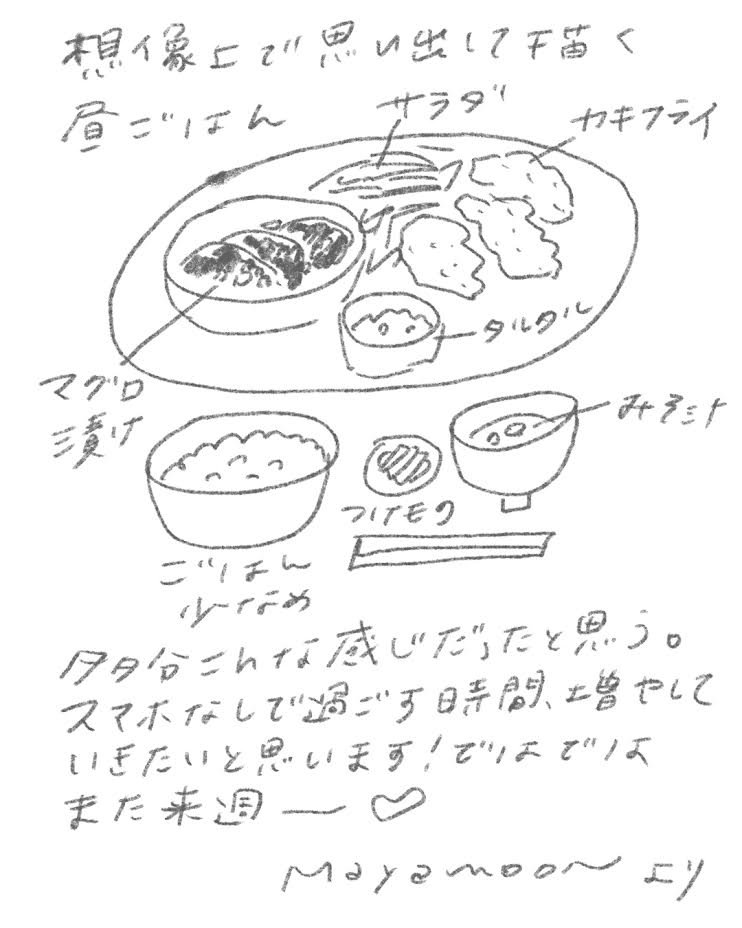 想像上で思い出して描く
昼ごはん
サラダ
カキフライ
タルタル
マグロ
漬け
みそ汁
つけモの
ごはん
少なめ
多分こんな感じだったと思う。
スマホなしで過ごす時間、増やして
いきたいと思います！ではでは
また来週ー♡
Mayamoonより